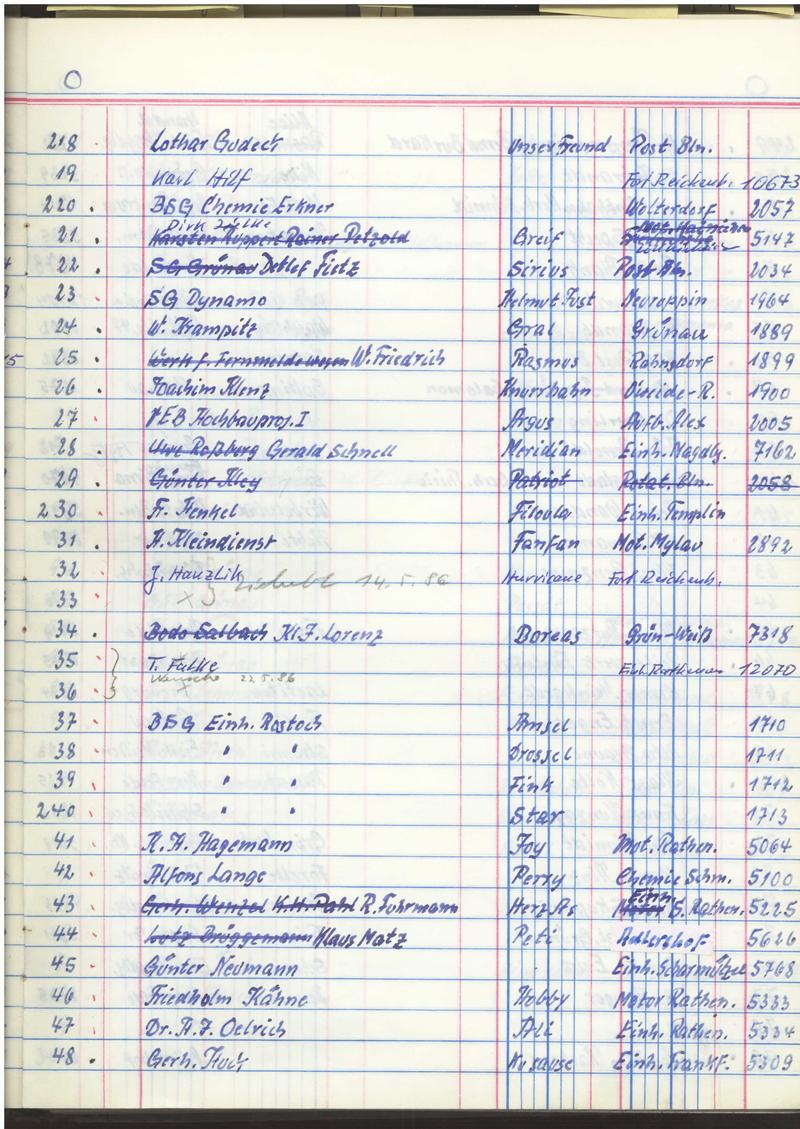 O
218 Lothar Gudech Unser Freund Post Bln.
19 Karl Hilf Fort. Reichenb. 10673
220 . BSG Chemie Erkner Woltersdorf 2057
Dirk
21 . Karsten Ruppert Rainer Petzold Greif 5147
22 . SG Grünau Detlef Fietz Sirius Post Bln. 2034
23 . SG Dynamo Helmut Just Neuruppin 1964
24 . W. Krampitz Gral Grünau 1889
25 . Werk f. Fernmeldewesen W. Friedrich Rasmus Rahnsdorf 1899
26 . Joachim Klenz Knurrhahn 1900
27 VEB Hochbauproj. I Argus Aufb. Alex 2005
28 . Uwe Roßberg Gerald Schnell Meridian Einh. Magdbg. 7162
29 . Günter Kley Patriot Rotat. Bln. 2058
230 . F. Henkel Filoula Einh. Templin
31 . H. Kleindienst Fanfan Mot. Mylau 2892
32 J. Hanzlik Hurricane Fort. Reichenb.
14.5.86
33 x
34 . Bodo Salbach Kl. F. Lorenz Boreas Grün-Weiß 7318
35 T. Falke Einh. Rathenow 12070
22.5.86
36 x
37 BSG Einh. Rostock Amsel 1710
38 " " Drossel 1711
39 " " Fink 1712
240 " " Star 1713
41 K. H. Hagemann Joy Mot. Rathen. 5064
42 Alfons Lange Perry Chemie Schw. 5100
Einh.
43 Gerh. Wenzel K.H. Pahl R. Fuhrmann Herz As Motor S. Rathen. 5225
44 Lutz Brüggemann Klaus Matz Peti Adlershof 5626
45 Günter Neumann Einh. Scharmützel 5768
46 Friedholm Kähne Hobby Motor Rathen. 5333
47 Dr. H. J. Oelrich Ali Einh. Rathen. 5334
48 . Gerh. Huch Einh. Frankf. 5309